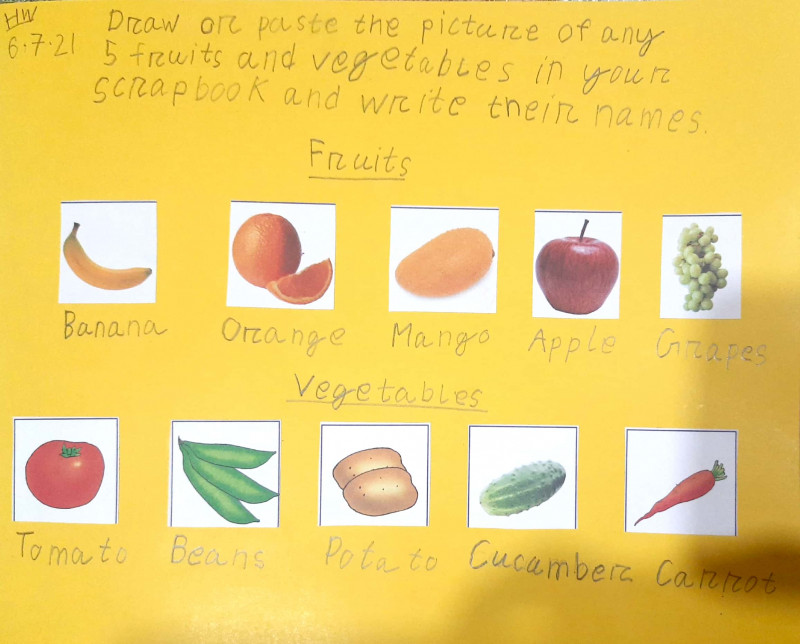 HW
6.7.21
Draw or paste the picture of any
5 fruits and vegetables in your
scrapbook and write their names.
Fruits
Banana Orange Mango Apple Grapes
Vegetables
Tomato Beans Potato Cucamber Carrot